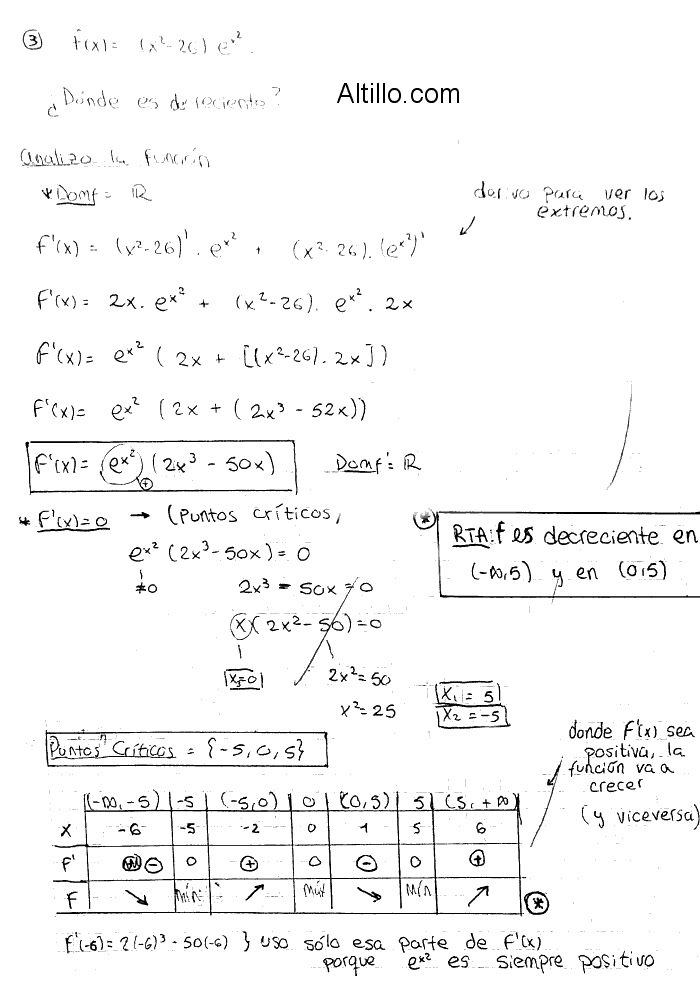 ③ f(x) = (x²-26) e^x².
¿Dónde es decreciente? Altillo.com
Analizo la función
* Domf = ℝ
derivo para ver los
extremos.
f'(x) = (x²-26)' . e^x² + (x²-26). (e^x²)'
f'(x) = 2x. e^x² + (x²-26). e^x² . 2x
f'(x) = e^x² ( 2x + [(x²-26). 2x])
f'(x) = e^x² (2x + (2x³ - 52x))
f'(x) = e^x² (2x³ - 50x) Domf' = ℝ
⊕
* f'(x)=0 → (puntos críticos,
e^x² (2x³-50x) = 0
≠0 2x³ - 50x = 0
x(2x²-50)=0
x₃=0 2x²=50
x²=25
x₁ = 5
x₂ = -5
⊛ RTA: f es decreciente en
(-∞,5) y en (0,5)
Puntos Críticos = {-5, 0, 5}
donde f'(x) sea
positiva, la
función va a
crecer
(y viceversa)
(-∞,-5) -5 (-5,0) 0 (0,5) 5 (5,+∞)
x -6 -5 -2 0 1 5 6
f' ⊖ 0 ⊕ 0 ⊖ 0 ⊕
f ↘ mín ↗ máx ↘ Mín ↗ ⊛
f'(-6) = 2(-6)³ - 50(-6) } uso sólo esa parte de f'(x)
porque e^x² es siempre positivo